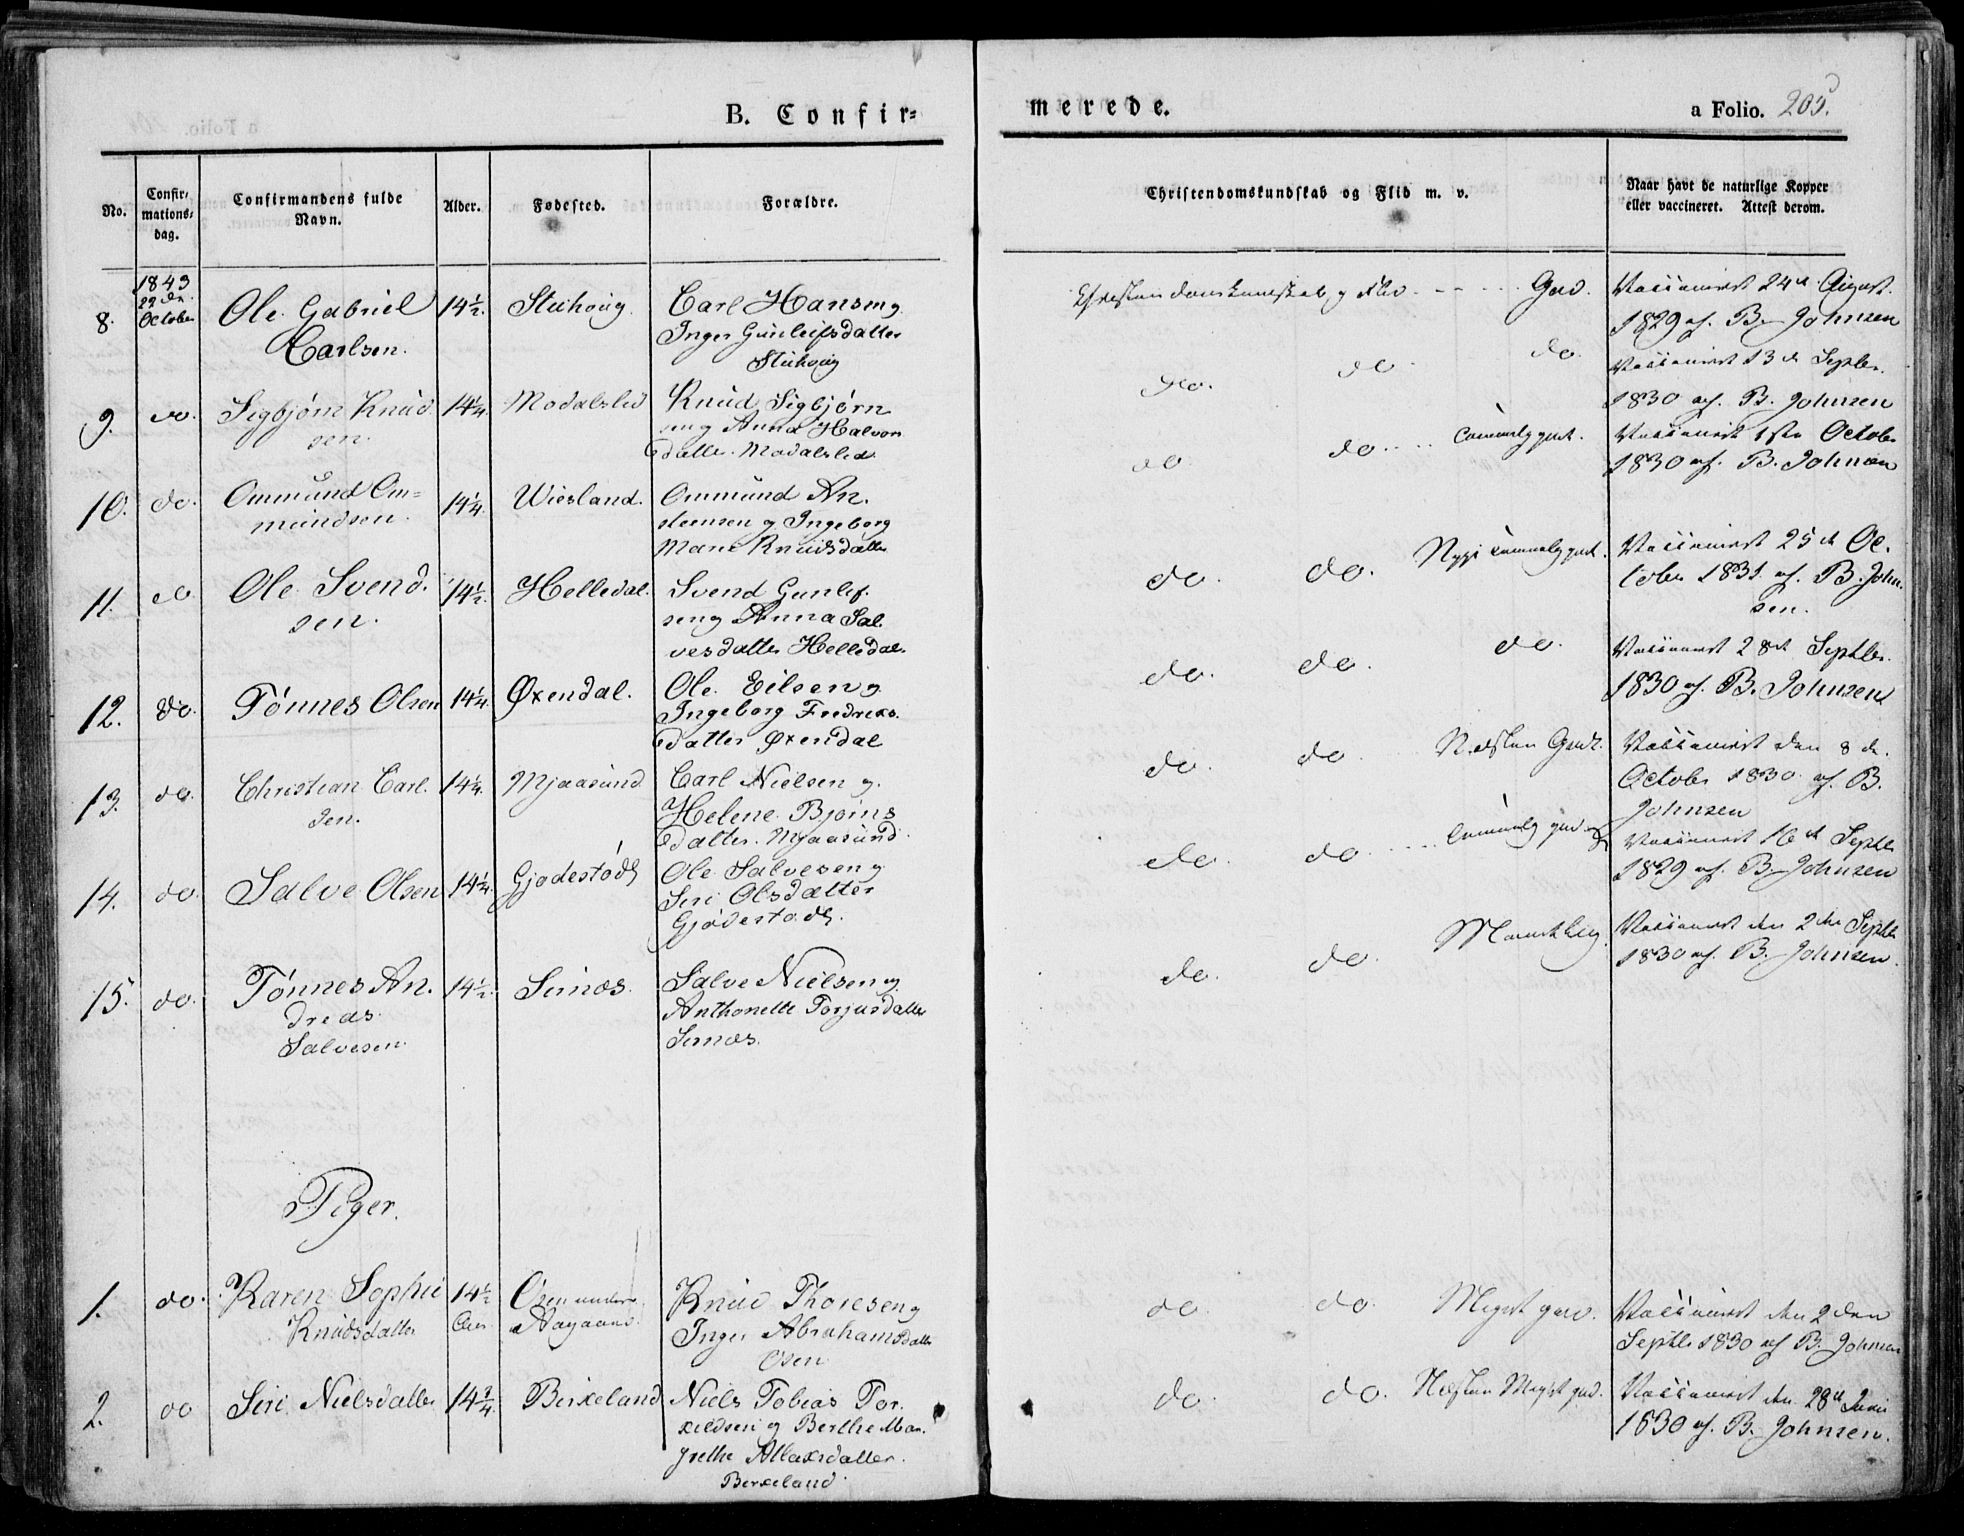 B. Confir=
merede.
a Folio. 205.
No.
Confir=
mations=
dag.
Confirmandens fulde
Navn.
Alder.
Fødested.
Forældre.
Christendomskundskab og Flid m. v.
Naar havt de naturlige Kopper
eller vaccineret. Attest derom.
8. 1843 22de October Ole Gabriel Carlsen. 14½. Stuhoug. Carl Hansen og
Inger Gunleifsdatter
Stuhoug
Christendomskundskab og Flid - - - - - God. Vaccineret 24de August.
1829 af. B. Johnsen
9. do. Sigbjørn Knud
sen. 14¼. Modalslid Knud Sigbjørn
sen og Anna Halvors
datter. Modalslid.
do. do. do. Vaccineret 13de Septbr.
1830 af. B. Johnsen
10. do. Ommund Om=
mundsen. 14¼. Wiesland. Ommund An.
steensen og Ingeborg
Marie Knudsdatter
do do. Temmelig godt. Vaccineret 1ste October
1830 af. B. Johnsen
11. do Ole Svend.
sen. 14½. Helledal. Svend Gunlef.
sen og Anna Sal
vesdatter Helledal.
do. do. temmelig godt. Vaccineret 25de Oc.
tober 1831 af. B. John.
sen.
12. do. Tönnes Olsen 14¼. Øxendal. Ole Eilsen og
Ingeborg Fredriks.
datter Øxendal
do. do. do. Vaccineret 28de Septbr.
1830 af. B. Johnsen
13. do. Christian Carl.
sen. 14¼. Mjaasund Carl Nielsen og.
Helene Bjørns
datter. Mjaasund.
do. do. Næsten Godt. Vaccineret den 8de.
October 1830 af. B.
Johnsen
14. do. Salve Olsen 14¼. Gjødestöd Ole Salvesen og
Siri Olsdatter
Gjødestad.
do. do. temmelig god. Vaccineret 16de Septbr
1829 af. B. Johnsen
15. do. Tönnes An.
dreas
Salvesen. 14½. Sirnæs. Salve Nielsen og
Anthonette Torjusdatter
Sirnæs.
do. do. Vaccineret den 2den Septbr
1830 af. B. Johnsen.
Piger.
1. do. Karen Sophie
Knudsdatter 14½
Aar. Osen under
Aagaard. Knud Thoresen og
Inger Abrahamsdatter
Osen
do. do. Meget god. Vaccineret den 2den
Septbr 1830 af B. Johnsen
2. do Siri Nielsdatter 14¾ Birkeland Niels Tobias Tor.
kildsen og Berthe Mar.
grethe Allaxsdatter.
Berkeland.
do. do. Næsten Meget god. Vaccineret den 28de Juni
1830 af. B. Johnsen.